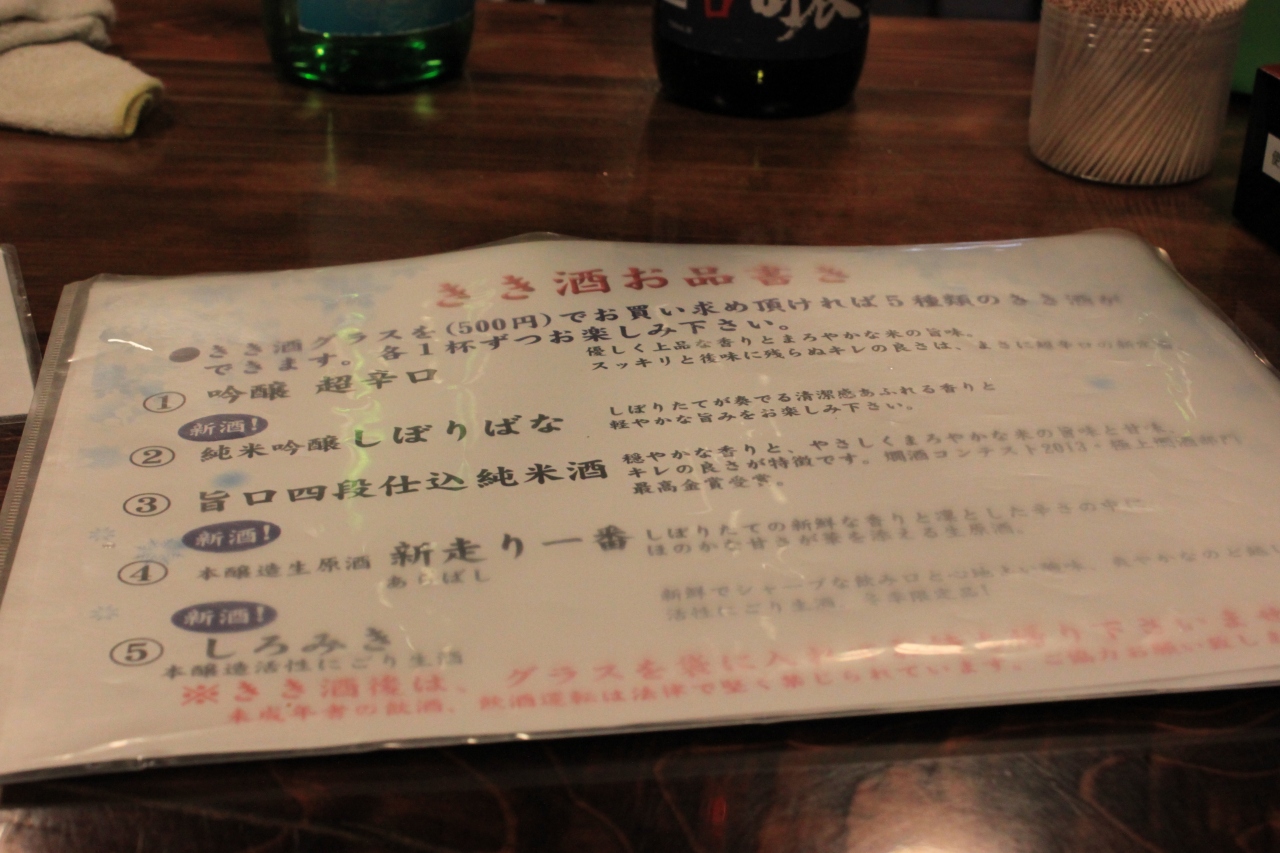 きき酒お品書き
●きき酒グラスを(500円)でお買い求め頂ければ5種類のきき酒が
できます。各1杯ずつお楽しみ下さい。
① 吟醸 超辛口
優しく上品な香りとまろやかな米の旨味。
スッキリと後味に残らぬキレの良さは、まさに超辛口の
新酒!
② 純米吟醸 しぼりばな
しぼりたてが奏でる清潔感あふれる香りと
軽やかな旨みをお楽しみ下さい。
③ 旨口四段仕込純米酒
穏やかな香りと、やさしくまろやかな米の旨味と甘味、
キレの良さが特徴です。燗酒コンテスト2013・極上燗酒部門
最高金賞受賞。
新酒!
④ 本醸造生原酒 新走り一番
あらばし
しぼりたての新鮮な香りと凛とした辛さの中に、
ほのかな甘さが華を添える生原酒。
新酒!
⑤ しろみき
本醸造活性にごり生酒
新鮮でシャープな飲み口と心地よい酸味、爽やかなのど越し
活性にごり生酒。冬季限定品!
※きき酒後は、グラスを袋に入れてお持ち帰り下さいませ
未成年者の飲酒、飲酒運転は法律で堅く禁じられています。ご協力お願い致しま